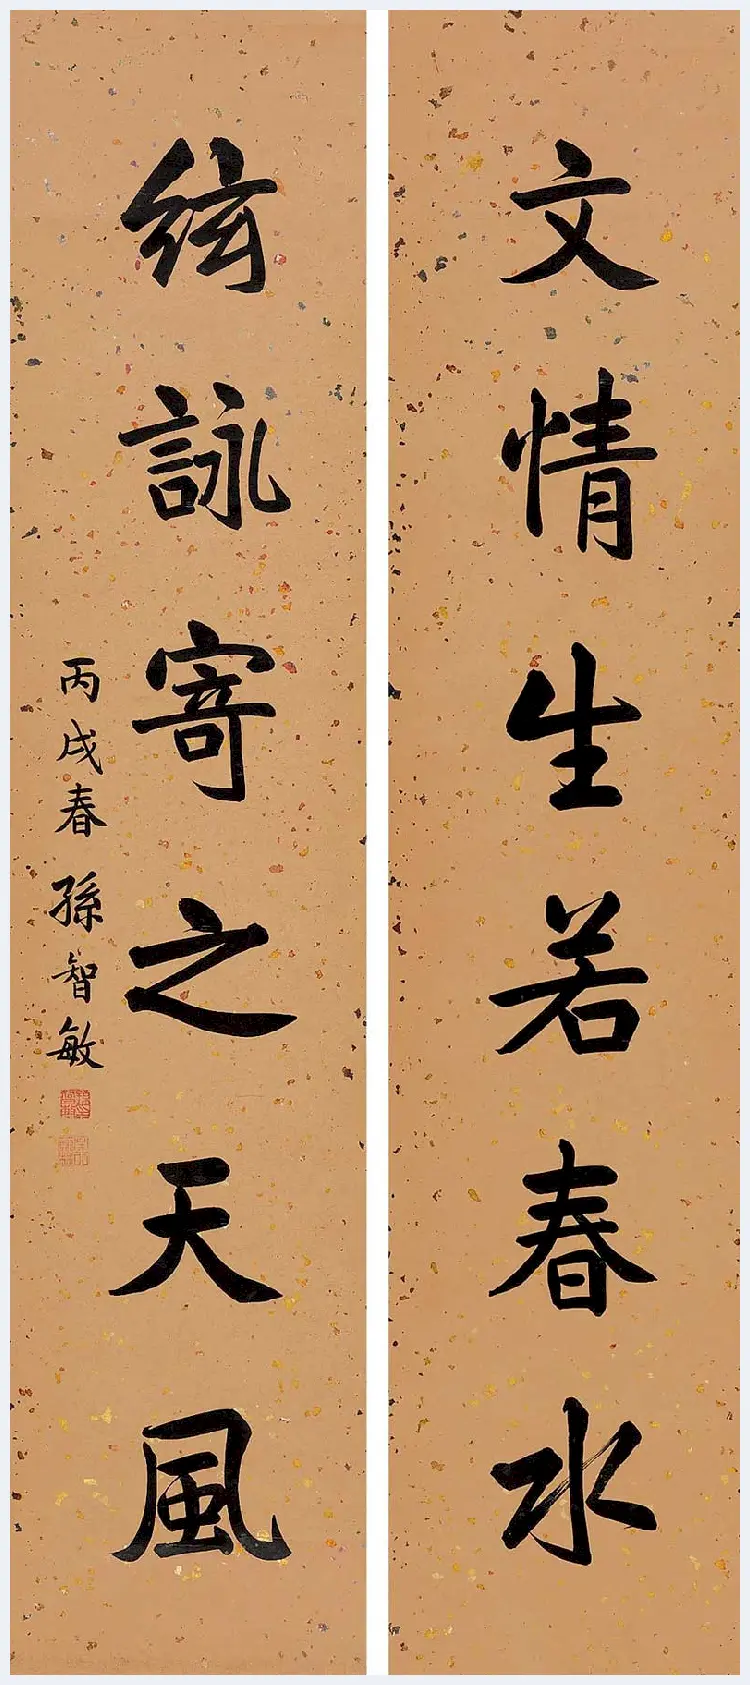 文情生若春水
絃詠寄之天風
丙戌春孫智敏